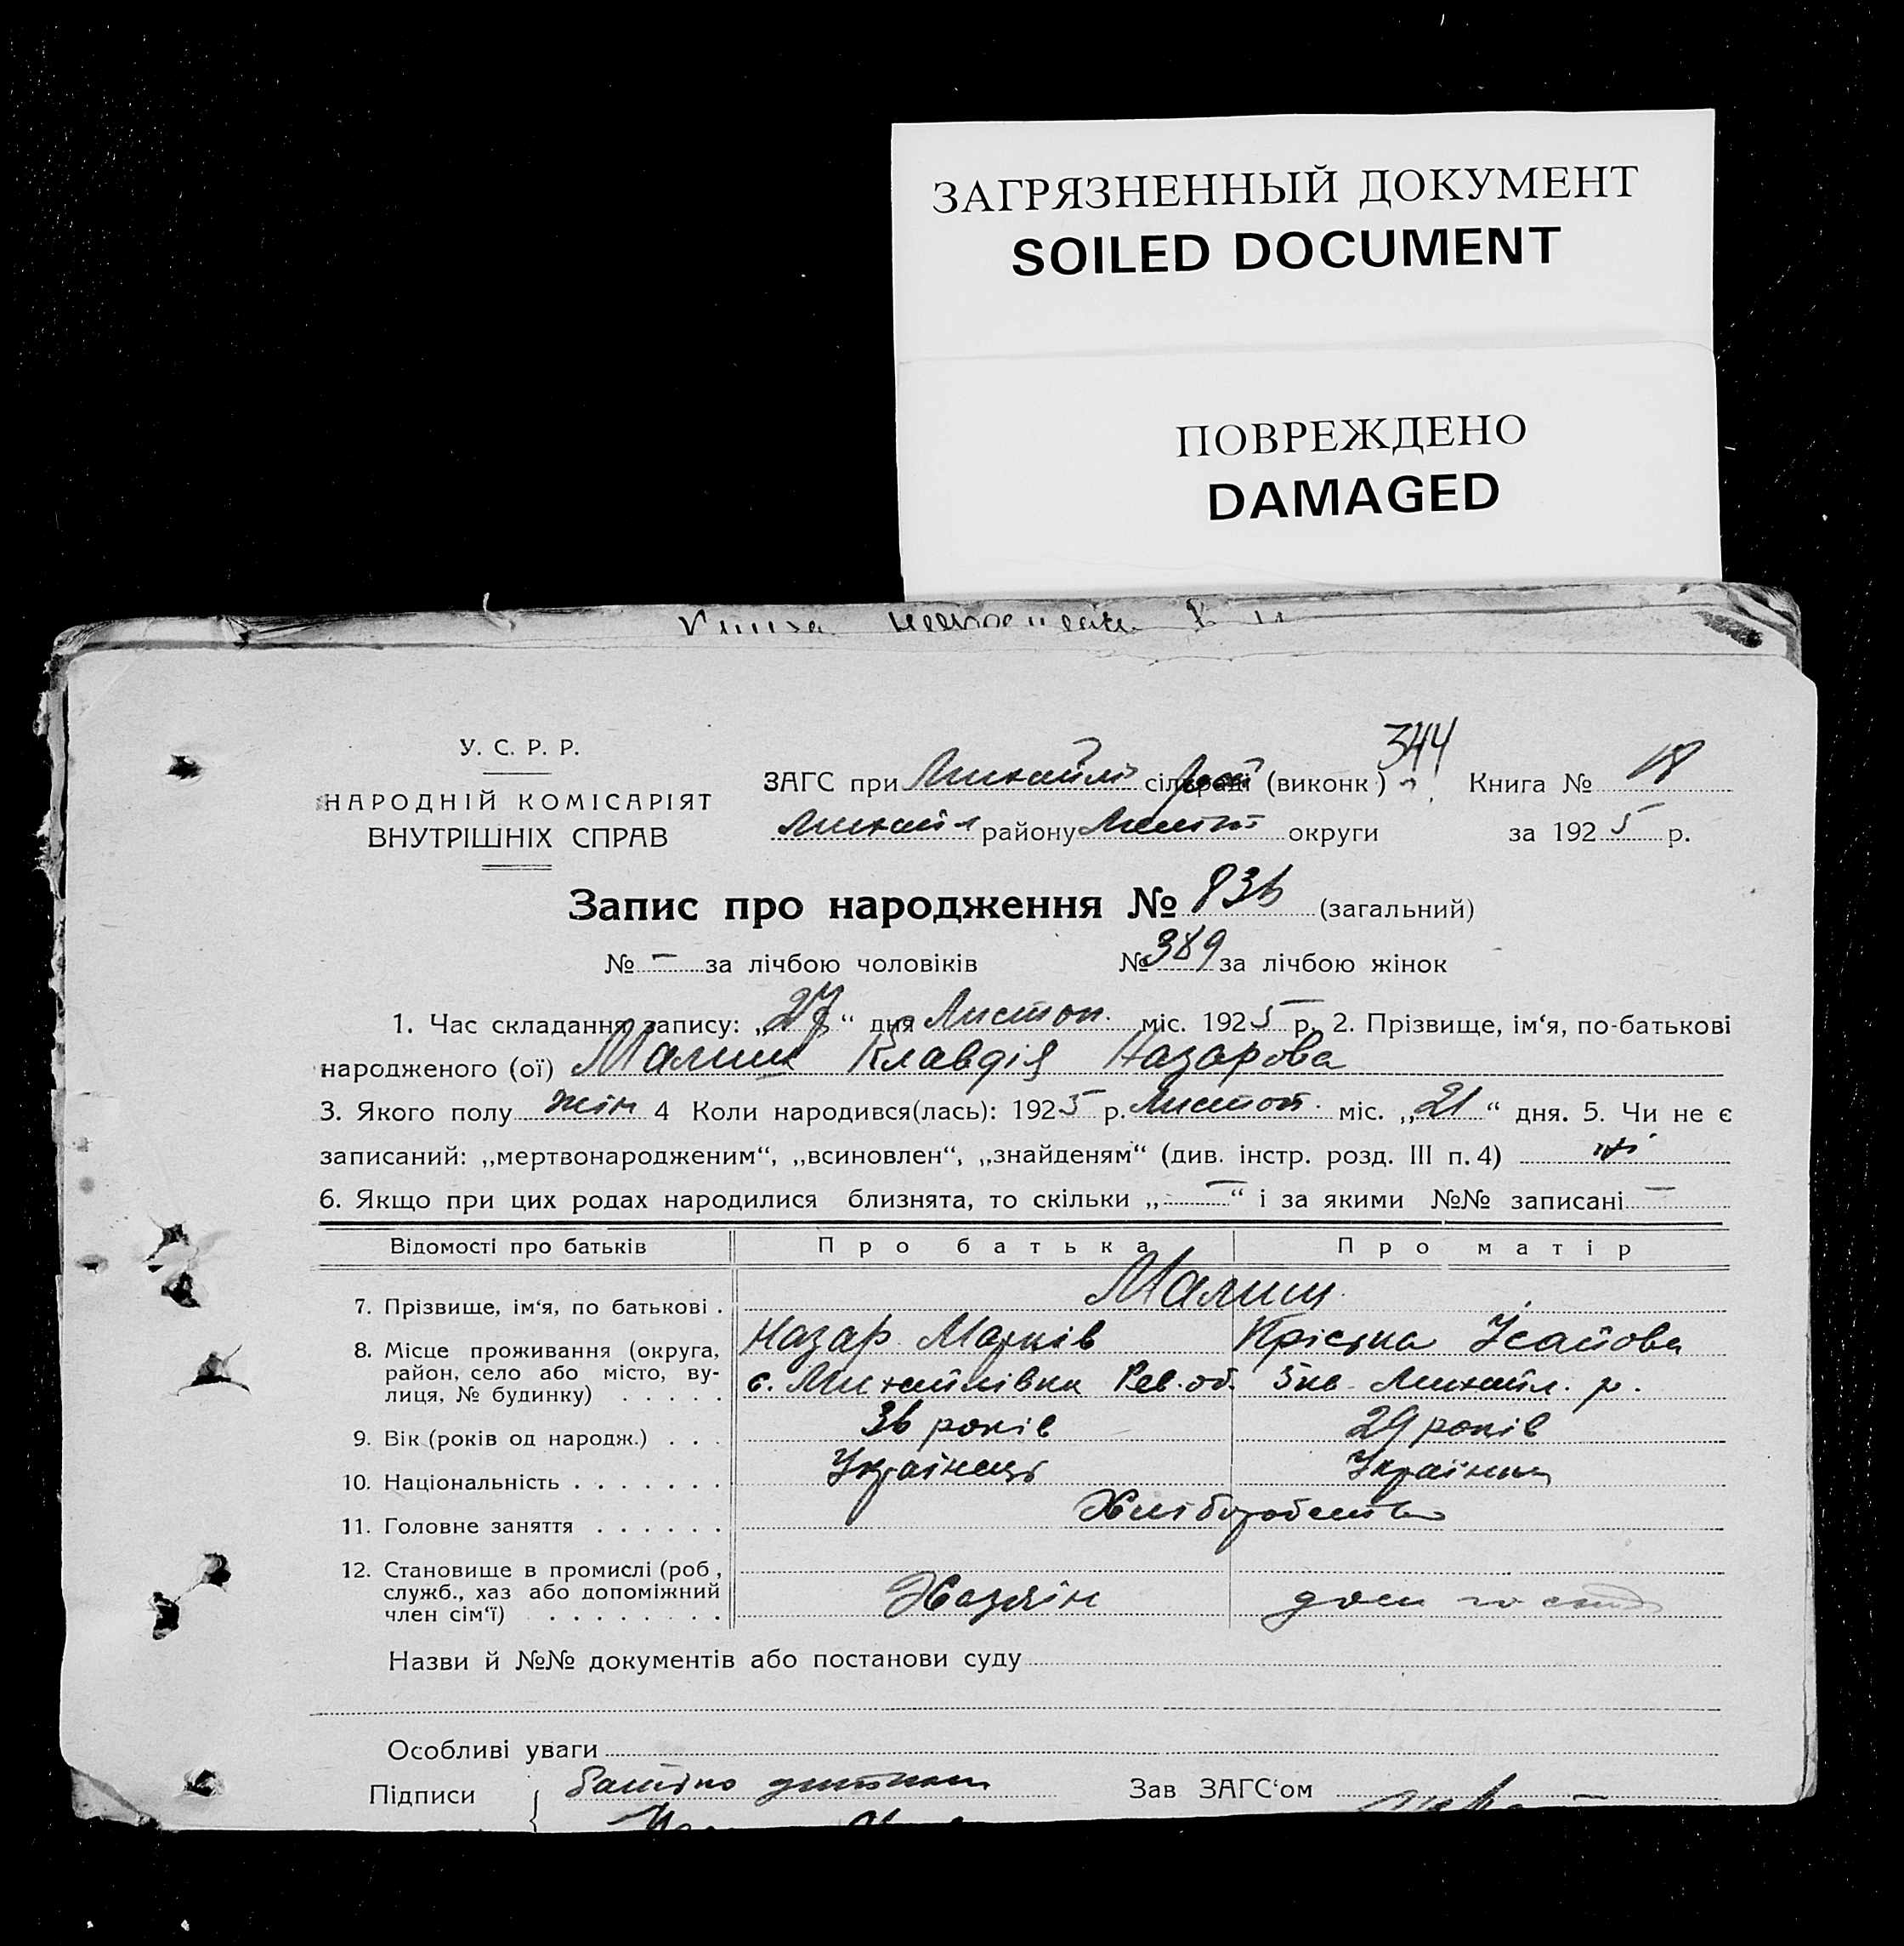 ЗАГРЯЗНЕННЫЙ ДОКУМЕНТ
SOILED DOCUMENT
ПОВРЕЖДЕНО
DAMAGED
344
У. С. Р. Р.
НАРОДНІЙ КОМІСАРІЯТ
ВНУТРІШНІХ СПРАВ
ЗАГС при Михайлів сільраді (виконк) Книга № 18
Михайл району Меліт округи за 1925 р.
Запис про народження № 836 (загальний)
№ — за лічбою чоловіків № 389 за лічбою жінок
1. Час складання запису: „27“ дня Листоп. міс. 1925 р. 2. Прізвище, ім‘я, по-батькові
народженого (ої) Малиш Клавдія Назарова
3. Якого полу жін 4 Коли народився(лась): 1925 р. Листоп. міс. „21“ дня. 5. Чи не є
записаний: „мертвонародженим“, „всиновлен“, „знайденям“ (див. інстр. розд. III п. 4) ні
6. Якщо при цих родах народилися близнята, то скільки „—“ і за якими №№ записані —
Відомості про батьків Про батька Про матір
7. Прізвище, ім‘я, по батькові . Малиш
Назар Марків Крістна Ісайова
8. Місце проживання (округа, район, село або місто, вулиця, № будинку) . . . . . с. Михайлівка Рев. об. 5 кв. Михайл. р.
9. Вік (років од народж.) . . . 36 років 29 років
10. Національність . . . . . . . Українець Українка
11. Головне заняття . . . . . . Хліборобство
12. Становище в промислі (роб, служб., хаз або допоміжний член сім‘ї) . . . . . . . . Хазяїн
Назви й №№ документів або постанови суду
Особливі уваги
Підписи { батько дитини Зав ЗАГС‘ом